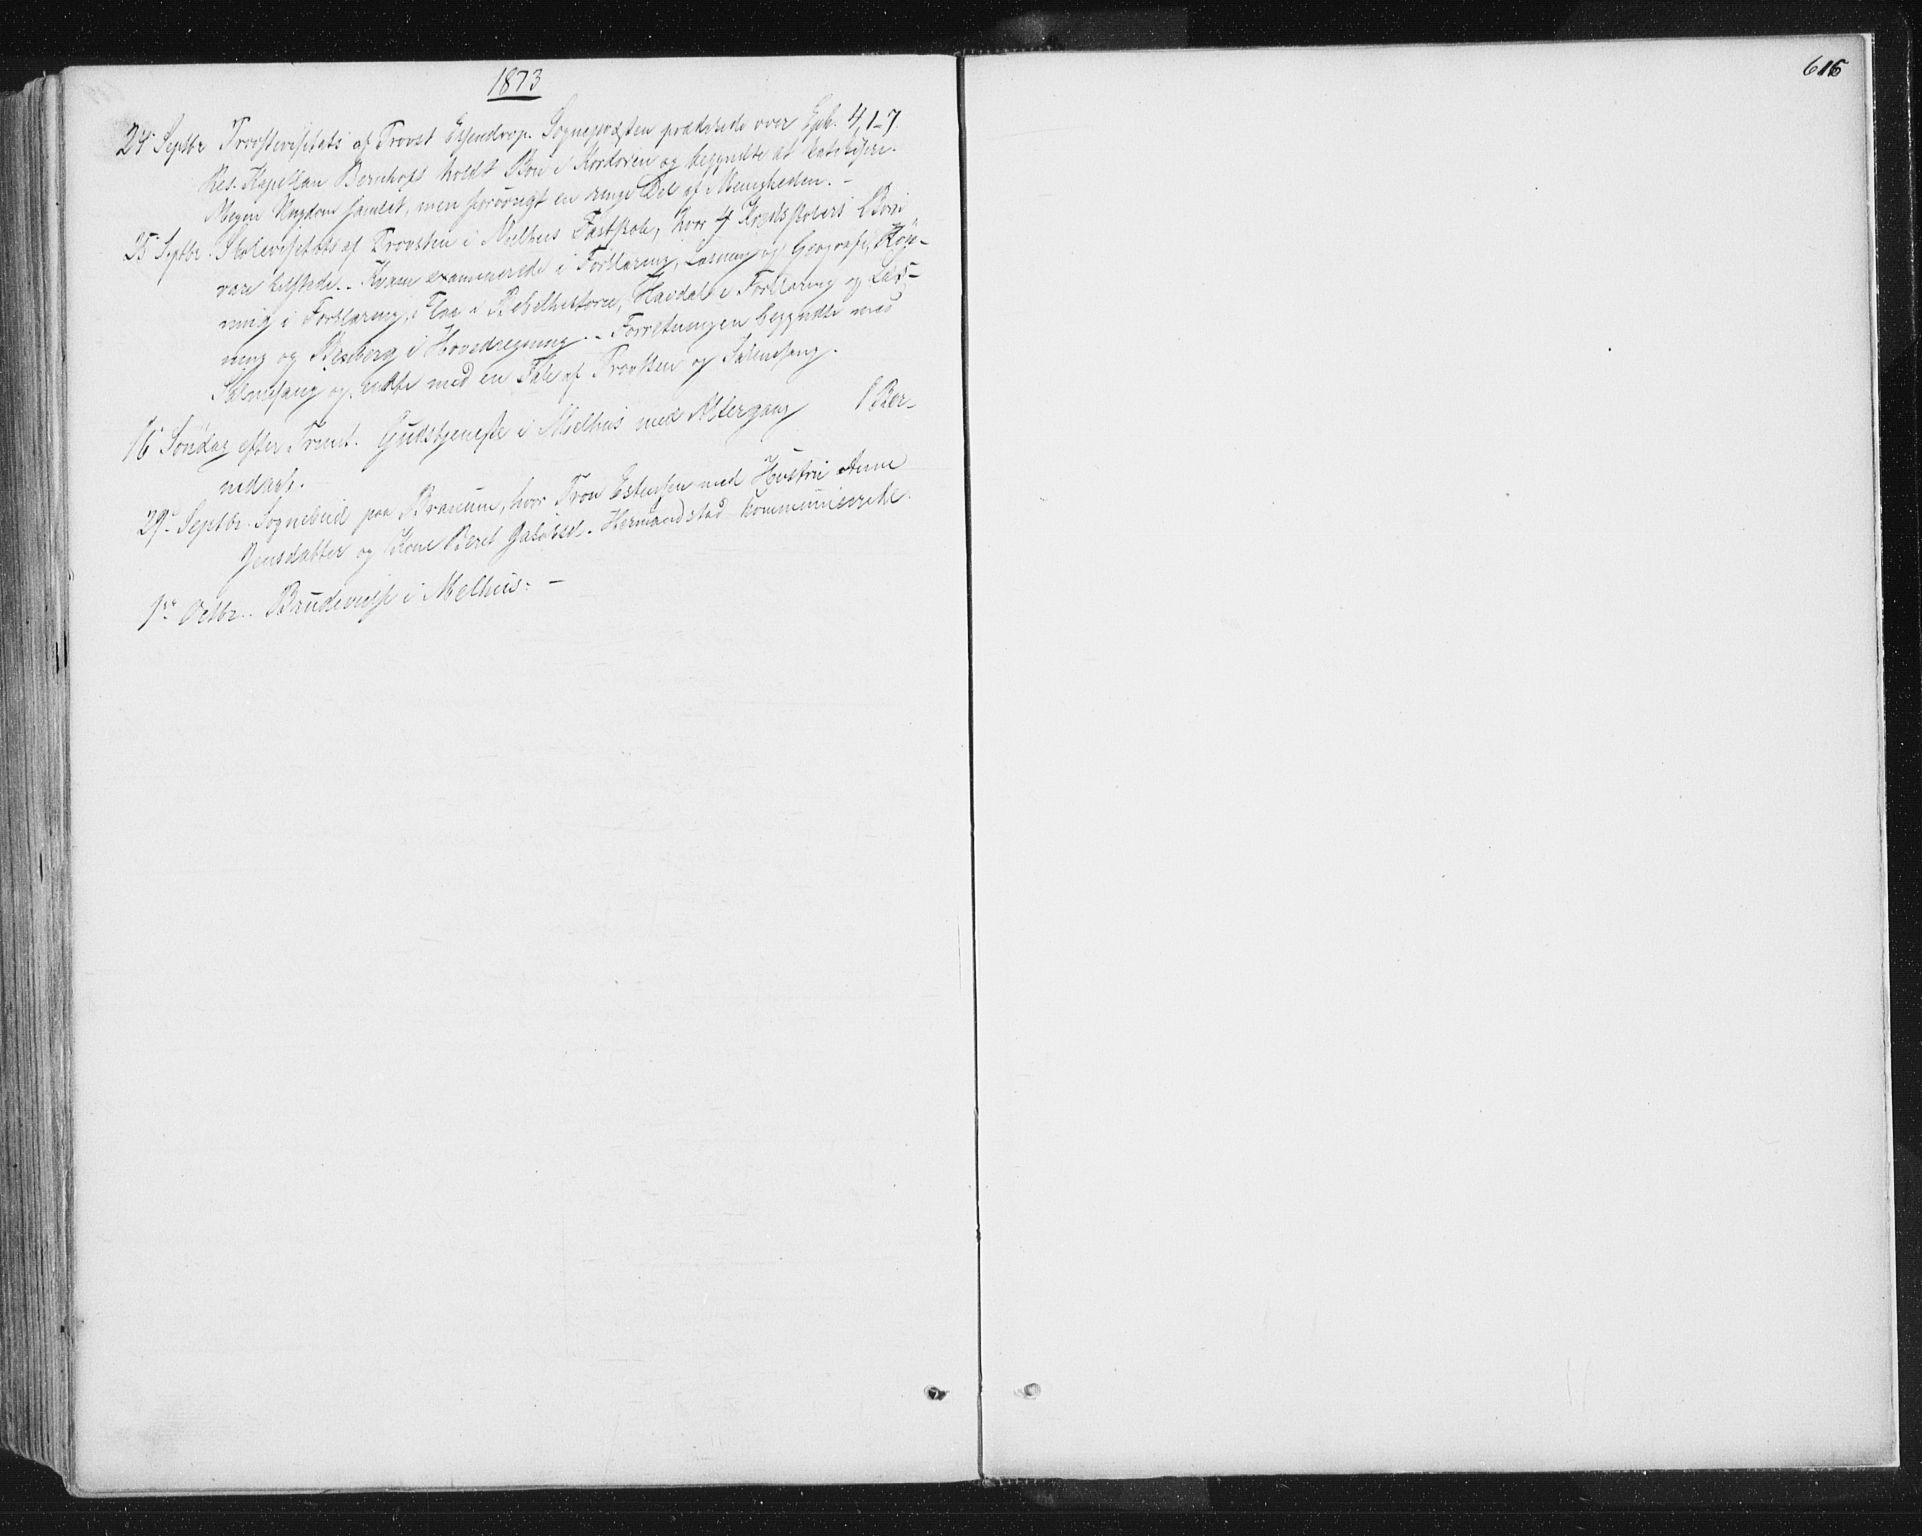 616
1873
24 Septbr Provstevisitats af Provst Essendrop. Sognepræsten prædikede over Eph. 4, 1-7.
Res. Kapellan Bernhoft holdt Bøn i Kordøren og begyndte at katekisere.
Megen Ungdom samlet, men forøvrigt en ringe Del af Menigheden. -
25 Septbr. Skolevisitats af Provsten i Melhus Fastskole, hvor 4 Kredsskolers Børn
vare tilstede. - Kvam examinerede i Forklaring, Læsning og Geografi,
ning i Forklaring, Flaa i Bibelhistorie, Havdal i Forklaring og Læs-
ning og Resberg i Hovedregning. - Forretningen begyndte med
Salmesang og endte med en Tale af Provsten og Salmesang.
16 Søndag efter Trinit. Gudstjeneste i Melhus med Altergang 1 Bar-
nedaab.
29 Septbr. Sognebud paa Braeum, hvor Tron Estensen med Hustru Anne
Jensdatter og Kone Beret Hermandstad kommunicerede.
1ste Octbr. Brudevielse i Melhus. -